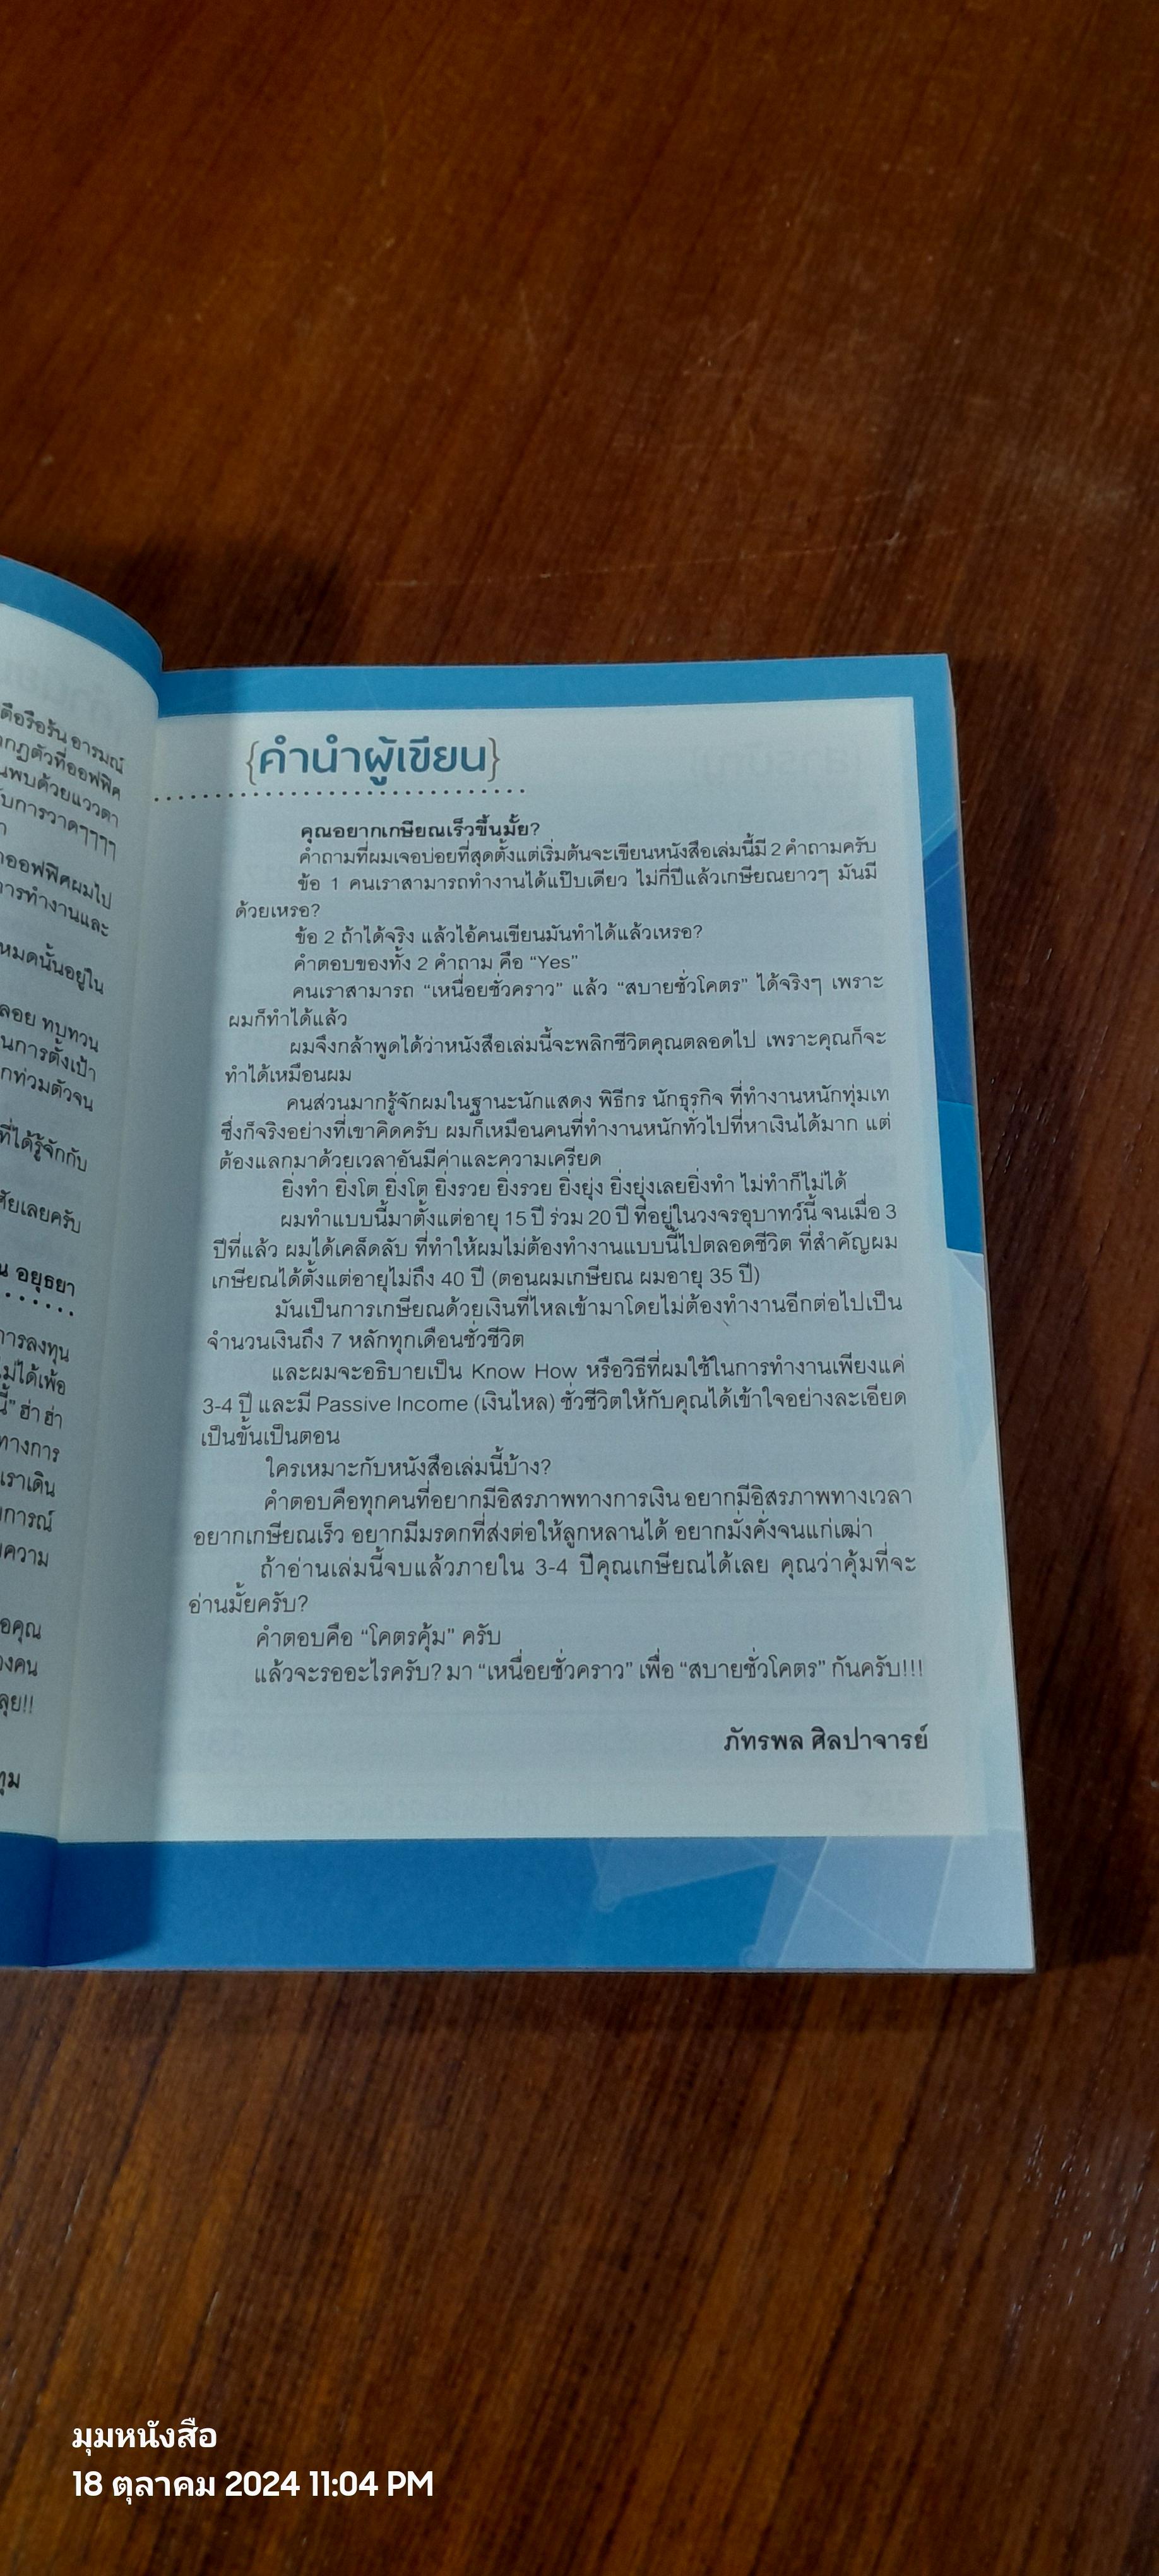 ดือรือร้น อารมณ์
กฏตัวที่ออฟฟิศ
พบด้วยแววตา
บการวาดๆๆๆๆ
ออฟฟิศผมไป
การทำงานและ
หมดนั้นอยู่ใน
ลอย ทบทวน
นการตั้งเป้า
กท่วมตัวจน
ที่ได้รู้จักกับ
ัยเลยครับ
น อยุธยา
การลงทุน
ม่ได้เพ้อ
นี้” ฮ่า ฮ่า
ทางการ
เราเดิน
การณ์
ความ
อคุณ
งคน
ลุย!!
ทุม
{คำนำผู้เขียน}
คุณอยากเกษียณเร็วขึ้นมั้ย?
คำถามที่ผมเจอบ่อยที่สุดตั้งแต่เริ่มต้นจะเขียนหนังสือเล่มนี้มี 2 คำถามครับ
ข้อ 1 คนเราสามารถทำงานได้แป๊บเดียว ไม่กี่ปีแล้วเกษียณยาวๆ มันมี
ด้วยเหรอ?
ข้อ 2 ถ้าได้จริง แล้วไอ้คนเขียนมันทำได้แล้วเหรอ?
คำตอบของทั้ง 2 คำถาม คือ “Yes”
คนเราสามารถ “เหนื่อยชั่วคราว” แล้ว “สบายชั่วโคตร” ได้จริงๆ เพราะ
ผมก็ทำได้แล้ว
ผมจึงกล้าพูดได้ว่าหนังสือเล่มนี้จะพลิกชีวิตคุณตลอดไป เพราะคุณก็จะ
ทำได้เหมือนผม
คนส่วนมากรู้จักผมในฐานะนักแสดง พิธีกร นักธุรกิจ ที่ทำงานหนักทุ่มเท
ซึ่งก็จริงอย่างที่เขาคิดครับ ผมก็เหมือนคนที่ทำงานหนักทั่วไปที่หาเงินได้มาก แต่
ต้องแลกมาด้วยเวลาอันมีค่าและความเครียด
ยิ่งทำ ยิ่งโต ยิ่งโต ยิ่งรวย ยิ่งรวย ยิ่งยุ่ง ยิ่งยุ่งเลยยิ่งทำ ไม่ทำก็ไม่ได้
ผมทำแบบนี้มาตั้งแต่อายุ 15 ปี ร่วม 20 ปี ที่อยู่ในวงจรอุบาทว์นี้ จนเมื่อ 3
ปีที่แล้ว ผมได้เคล็ดลับ ที่ทำให้ผมไม่ต้องทำงานแบบนี้ไปตลอดชีวิต ที่สำคัญผม
เกษียณได้ตั้งแต่อายุไม่ถึง 40 ปี (ตอนผมเกษียณ ผมอายุ 35 ปี)
มันเป็นการเกษียณด้วยเงินที่ไหลเข้ามาโดยไม่ต้องทำงานอีกต่อไปเป็น
จำนวนเงินถึง 7 หลักทุกเดือนชั่วชีวิต
และผมจะอธิบายเป็น Know How หรือวิธีที่ผมใช้ในการทำงานเพียงแค่
3-4 ปี และมี Passive Income (เงินไหล) ชั่วชีวิตให้กับคุณได้เข้าใจอย่างละเอียด
เป็นขั้นเป็นตอน
ใครเหมาะกับหนังสือเล่มนี้บ้าง?
คำตอบคือทุกคนที่อยากมีอิสรภาพทางการเงิน อยากมีอิสรภาพทางเวลา
อยากเกษียณเร็ว อยากมีมรดกที่ส่งต่อให้ลูกหลานได้ อยากมั่งคั่งจนแก่เฒ่า
ถ้าอ่านเล่มนี้จบแล้วภายใน 3-4 ปีคุณเกษียณได้เลย คุณว่าคุ้มที่จะ
อ่านมั้ยครับ?
คำตอบคือ “โคตรคุ้ม” ครับ
แล้วจะรออะไรครับ? มา “เหนื่อยชั่วคราว” เพื่อ “สบายชั่วโคตร” กันครับ!!!
ภัทรพล ศิลปาจารย์
มุมหนังสือ
18 ตุลาคม 2024 11:04 PM